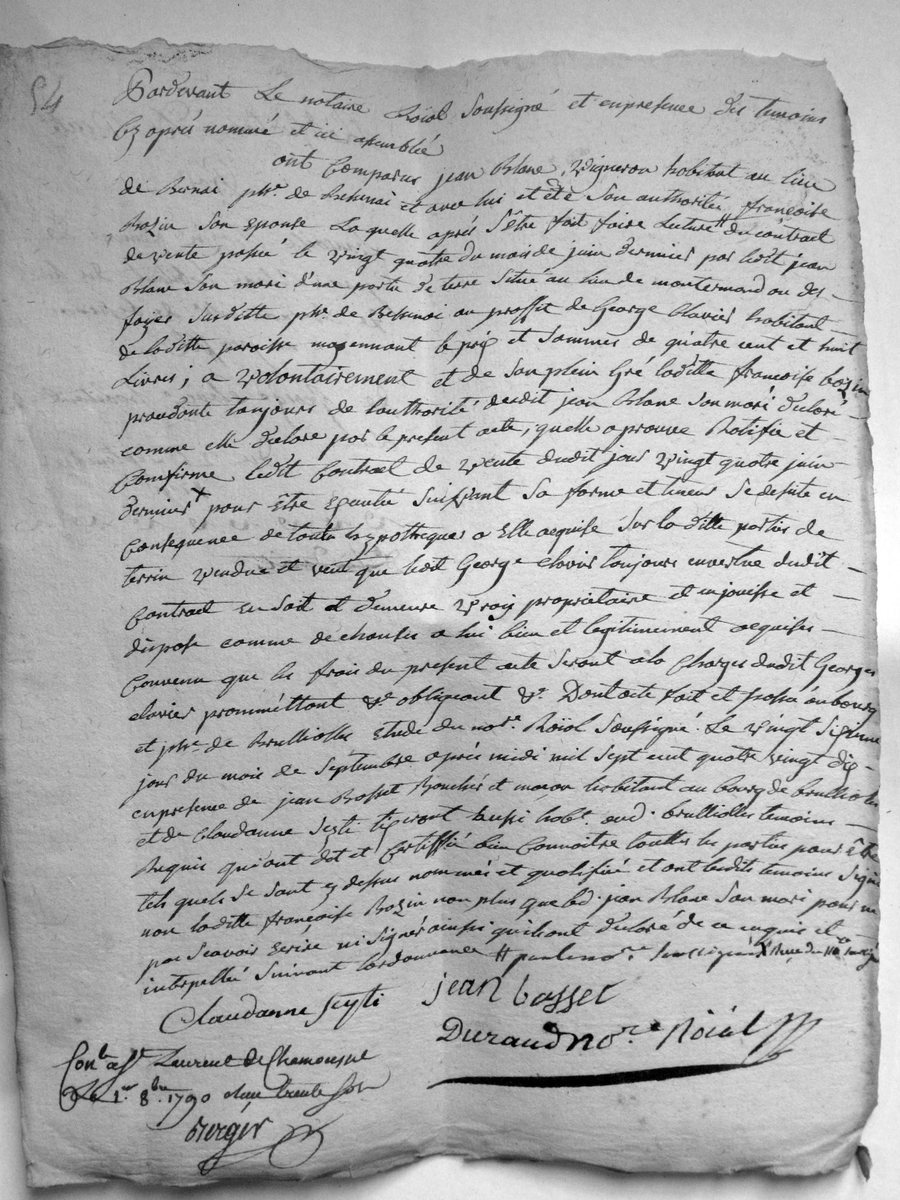 54
Pardevant Le notaire Röial Soussigné et en presence des temoins
Cy après nommé et ici assemblée
ont Comparus jean Blanc Vigneron habitant au lieu
de Bernai phe. de Bessenai et avec lui et été Son authorité françoise
Bozin Son Epouse La quelle après S'être fait faire Lecture # du Contract
de Vente passé le Vingt quatre du mois de juin dernier par ledit jean
Blanc Son mari d'une partie de terre Situé au lieu de montermand ou des
fayes Susditte phe. de Bessenai au proffit de George Clavier habitant
de laditte paroisse moyennant le prix et Sommes de quatre cent et huit
Livres; a Volontairement et de Son plein Gré laditte françoise bozin
procedante toujours de l'authorité dudit jean Blanc Son mari declaré
comme elle declare par le present acte, quelle aprouve Ratifie et
Comfirme ledit Contract de Vente dudit jour Vingt quatre juin
dernier + pour être Executé Suivant Sa forme et teneur Se desiste en
Consequence de toutes hypotheques a Elle acquise Sur laditte parties de
terrin Vendue et veut que ledit George Clavier toujours en vertue dudit
Contract en Soit et demeure Vray proprietaire et en jouisse et
dispose comme de choses a lui bien et legitimement acquises
Convenu que les frais du present acte Seront a la Charges dudit George
clavier promméttant &c. obligeant &c. Dont acte fait et passé au bourg
et phe. de Brulliolles Etude du nore. Röial Soussigné. Le Vingt Septieme
jour du mois de Septembre après midi mil Sept cent quatre Vingt dix
en presence de jean Bosset Bouché et maçon habitant au bourg de brulliolles
et de Claudanne Seyti tigerant aussi habt. aud. brulliolles temoins
Requis qui ont dit et Certiffié bien Connoitre touttes les parties pour être
tels quels Se Sont cy dessus nommés et qualifiée et ont lesdits temoins Signé
non laditte françoise Bozin non plus que led. jean Blanc Son mari pour ne
pas Scavoir Ecrire ni Signer ainsi qu'ils ont declaré de ce enquis et
interpellé Suivant l'ordonnance # par le nore. Soussigné + Reçu du nore. Soussigné
Claudanne Seyti
jean bosset
Durand nore. Röial
Conlé a St Laurent de Chamousset
Le 1er. 8bre. 1790 Reçu trente Sols
Berger